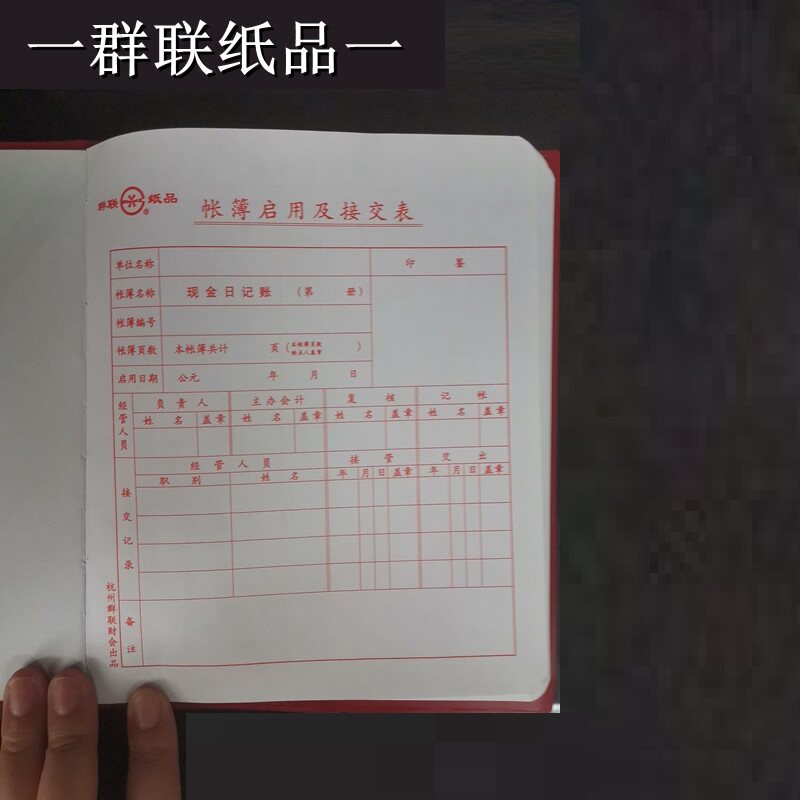 一群联纸品一
群联 ® 纸品
帐簿启用及接交表
单位名称 印 鉴
帐簿名称 现金日记账 (第 册)
帐簿编号
帐簿页数 本帐簿共计 页 (本帐簿页数 检点人盖章)
启用日期 公元 年 月 日
经管人员 负责人 主办会计 复核 记帐
姓名 盖章 姓名 盖章 姓名 盖章 姓名 盖章
接交记录 经管人员 接管 交出
职别 姓名 年 月 日 盖章 年 月 日 盖章
备注
杭州群联财会出品